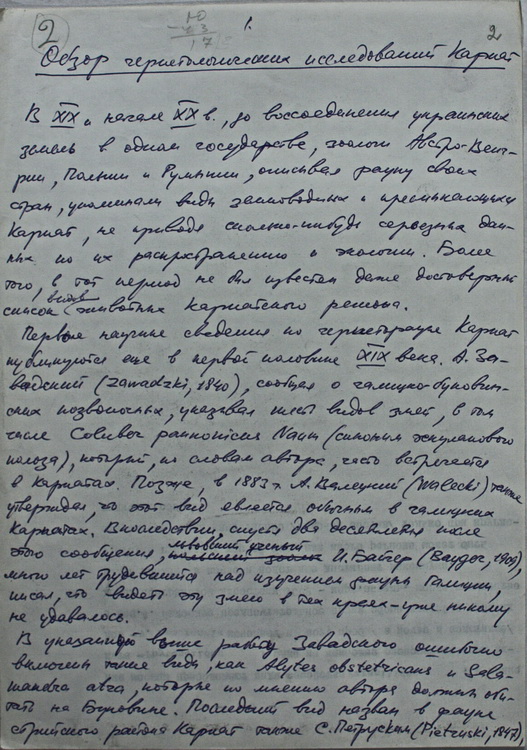 2 10 1. 2
- 3
17
Обзор герпетологических исследований Карпат
В XIX и начале XX в., до воссоединения украинских
земель в одном государстве, зоологи Австро-Венг-
рии, Польши и Румынии, описывая фауну своих
стран, упоминали виды земноводных и пресмыкающихся
Карпат, не приводя сколько-нибудь серьезных дан-
ных по их распространению и экологии. Более
того, в тот период не был известен даже достоверный
список видов животных Карпатского региона.
Первые научные сведения по герпетофауне Карпат
публикуются еще в первой половине XIX века. А. За-
вадский (Zawadzki, 1840), сообщая о галицко-буковин-
ских позвоночных, указывал шесть видов змей, в том
числе Coluber pannonicus Naum (синоним эскулапового
полоза), который, по словам автора, часто встречается
в Карпатах. Позже, в 1883 г. А. Валецкий (Walecki) также
утверждал, что этот вид является обычным в галицких
Карпатах. Впоследствии, спустя два десятилетия после
этого сообщения, львовский ученый польский зоолог И. Байгер (Bayger, 1909),
много лет трудившийся над изучением фауны Галиции,
писал, что видеть эту змею в тех краях уже никому
не удавалось.
В указанной выше работе Завадского ошибочно
включены такие виды, как Alytes obstetricans и Sala-
mandra atra, которые по мнению автора должны оби-
тать на Буковине. Последний вид назван в фауне
стрийского района Карпат также С. Петруским (Pietruski, 1847),